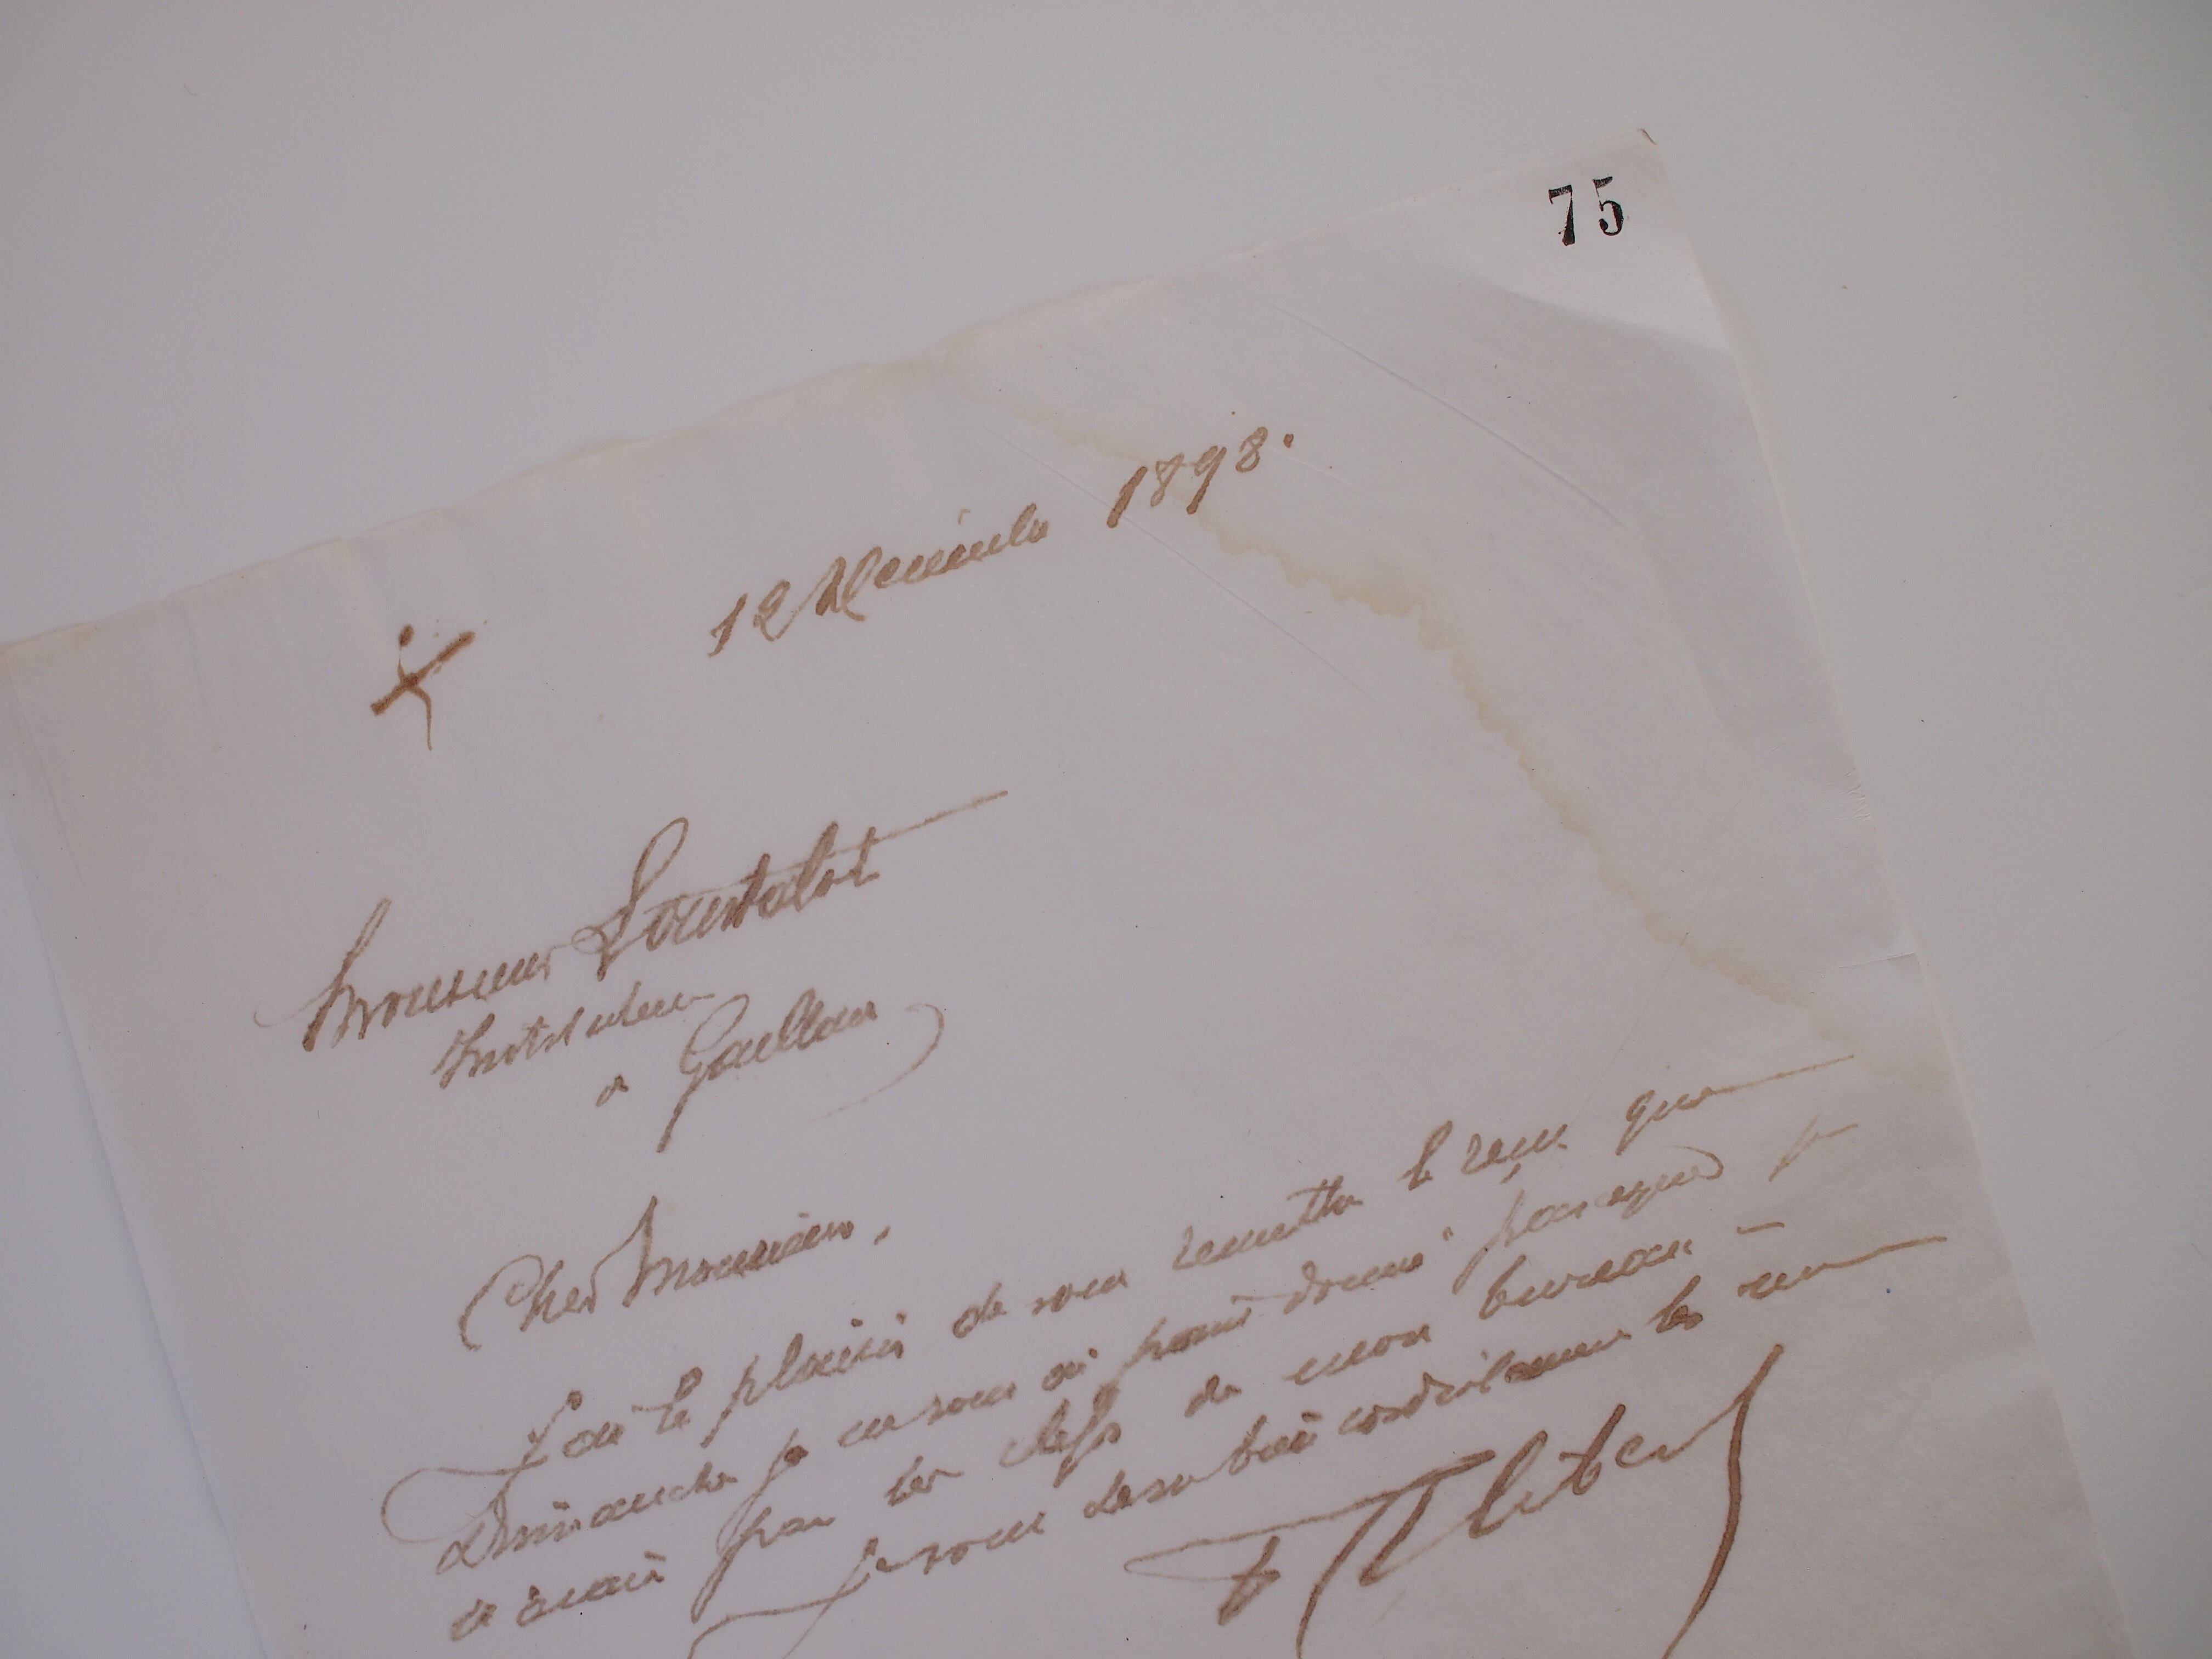 75
12 Décembre 1898.
Monsieur Loustalot
Instituteur
a Gaillan
Cher Monsieur,
J'ai le plaisir de vous remettre le reçu que
Dimanche je ne vous ai point donné parceque je
n'avais pas les clefs de mon bureau
Je vous serre bien cordialement la main